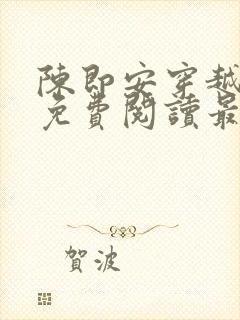 陳即安穿越
免費閱讀最
賀波